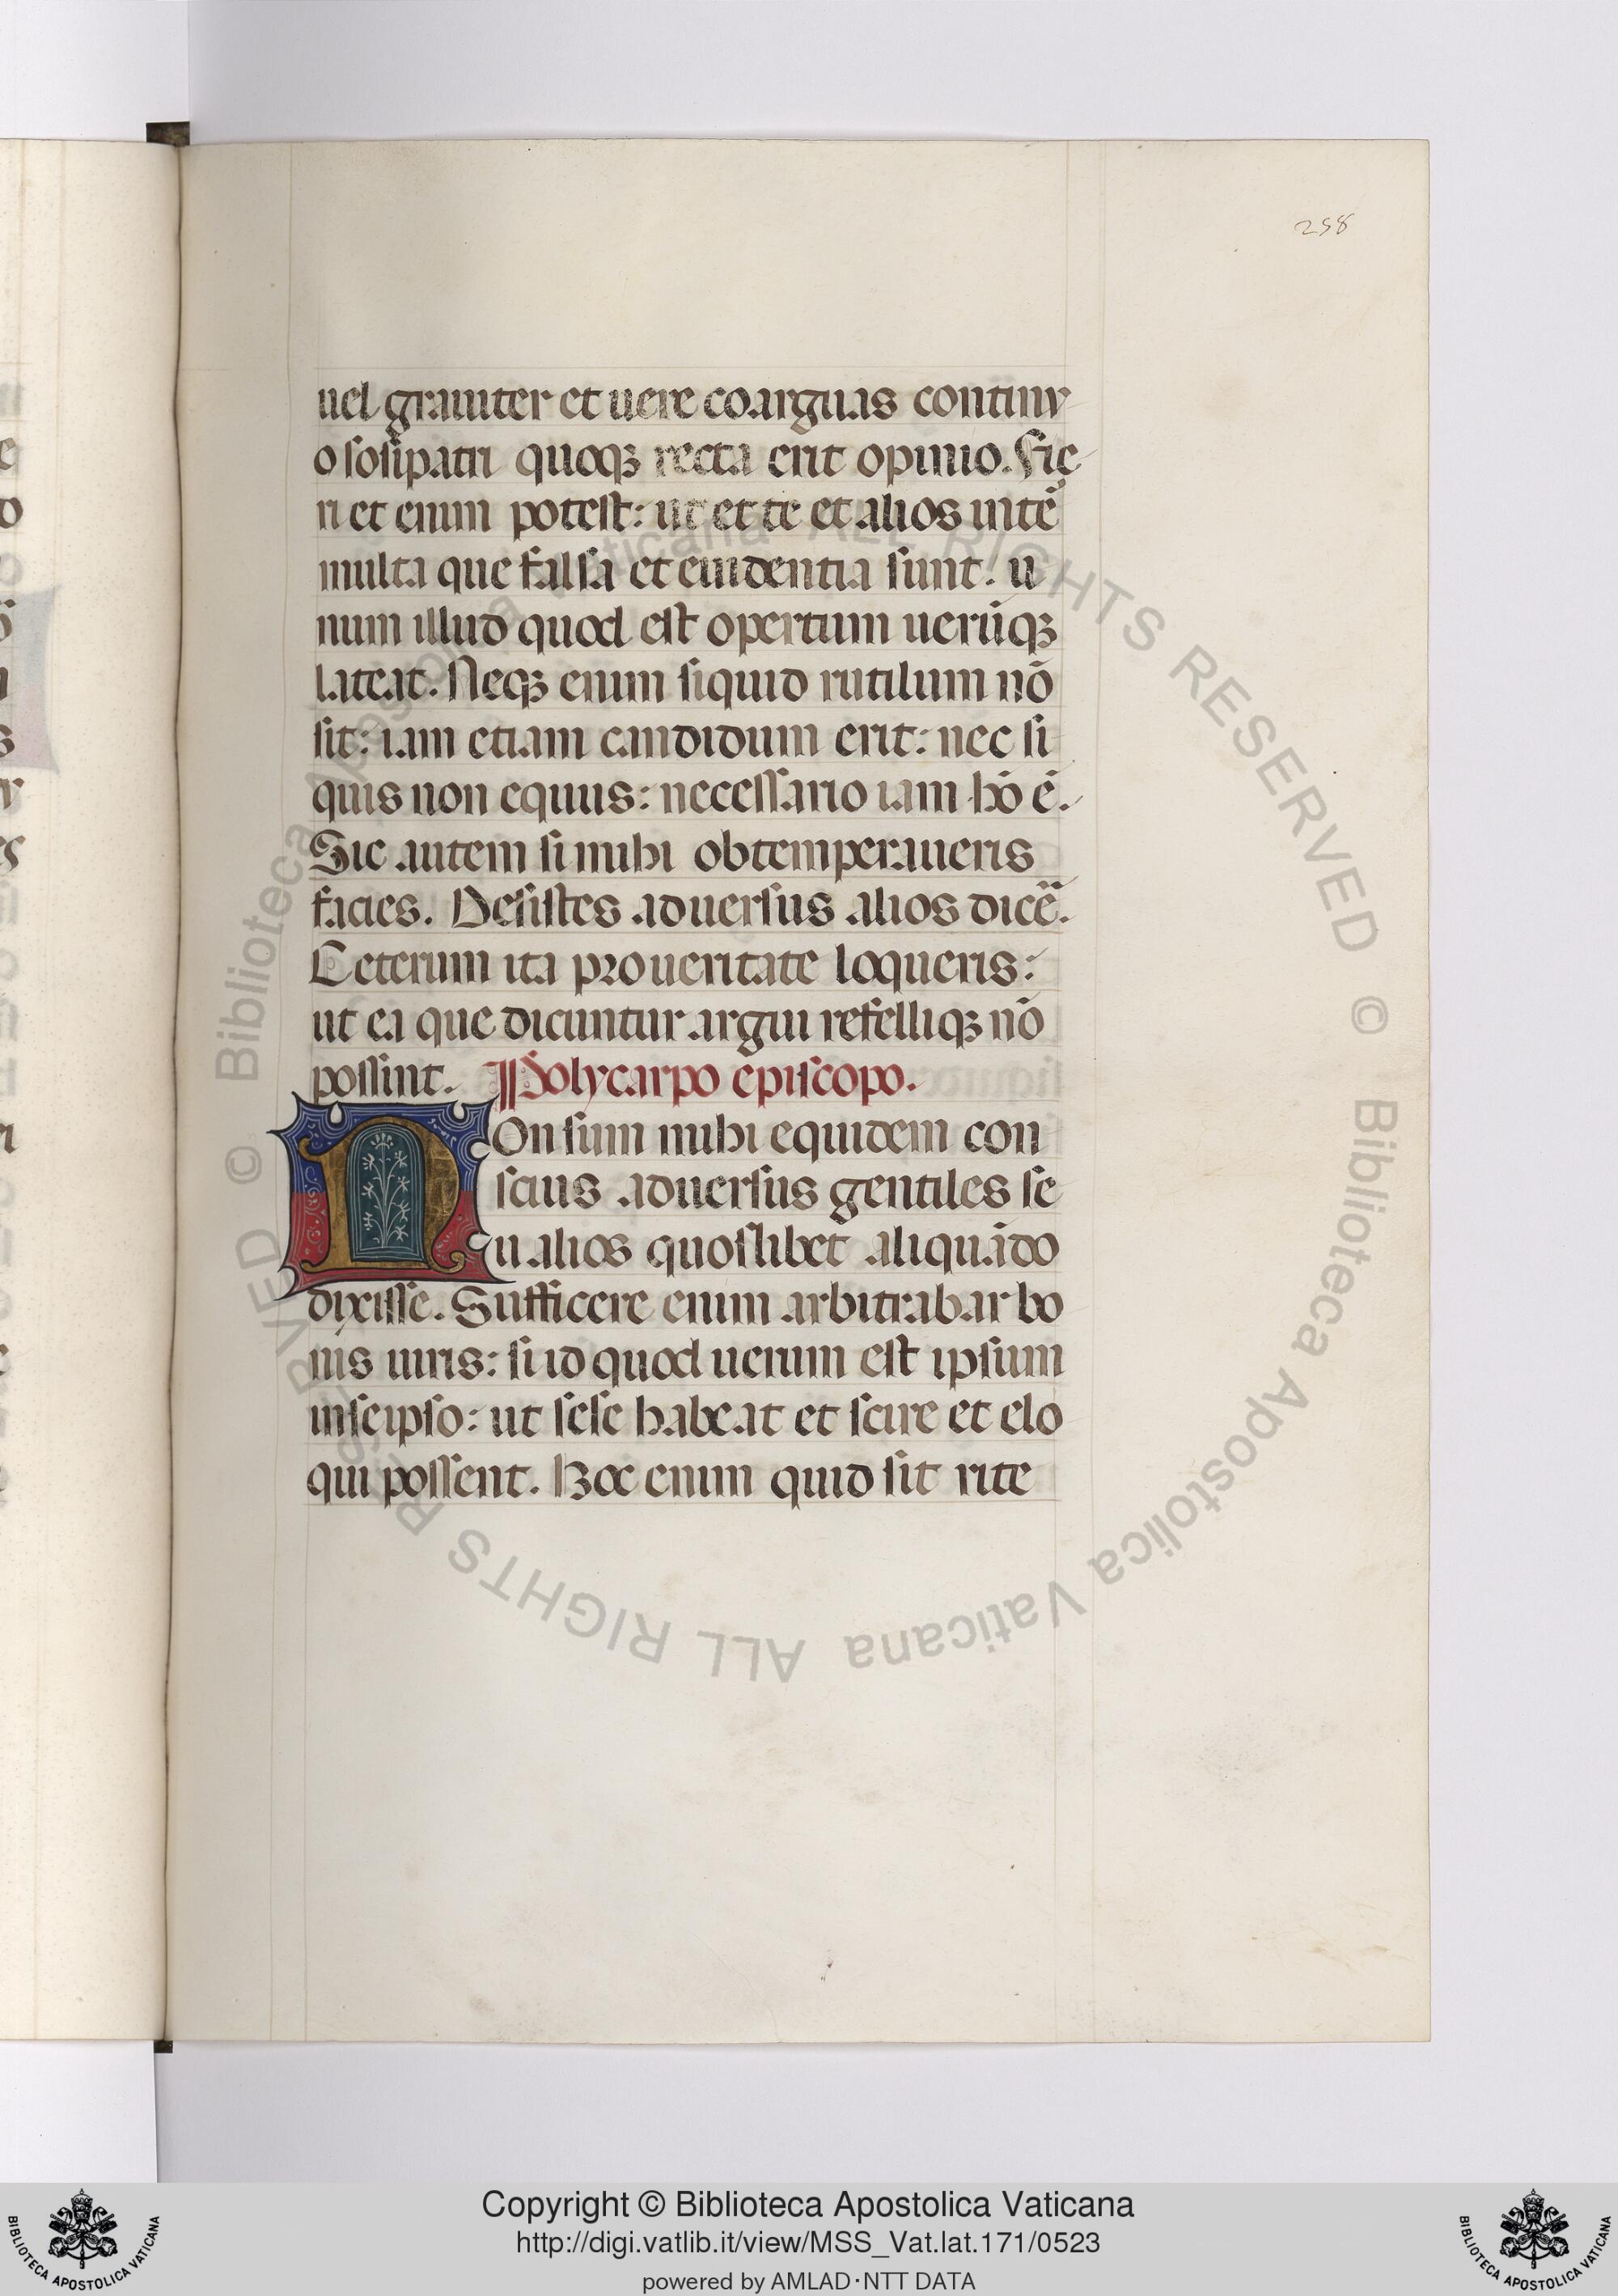 258
uel grauiter et uere coarguas continu
o sosipatri quoqꝫ recta erit opinio. Fie
ri et enim potest: ut et te et alios inte᷑
multa que falsa et euidentia sunt: u
num illud quod est opertum uerũqꝫ
lateat. Neqꝫ enim siquid rutilum nõ
sit: iam etiam candidum erit: nec si
quis non equus: necessario iam hõ ẽ.
Sic autem si mihi obtemperaueris
facies. Desistes aduersus alios dicẽ.
Ceterum ita pro ueritate loqueris:
ut ea que dicuntur argui refelliqꝫ nõ
possint. Polycarpo episcopo.
NOn sum mihi equidem con
scius aduersus gentiles se
u alios quoslibet aliquãdo
dixisse. Sufficere enim arbitrabar bo
nis uiris: si id quod uerum est ipsum
inseipso: ut sese habeat et scire et elo
qui possent. Hoc enim quid sit rite
© Biblioteca Apostolica Vaticana ALL RIGHTS RESERVED © Biblioteca Apostolica Vaticana ALL RIGHTS RESERVED
Copyright © Biblioteca Apostolica Vaticana
http://digi.vatlib.it/view/MSS_Vat.lat.171/0523
powered by AMLAD·NTT DATA
BIBLIOTECA APOSTOLICA VATICANA
BIBLIOTECA APOSTOLICA VATICANA